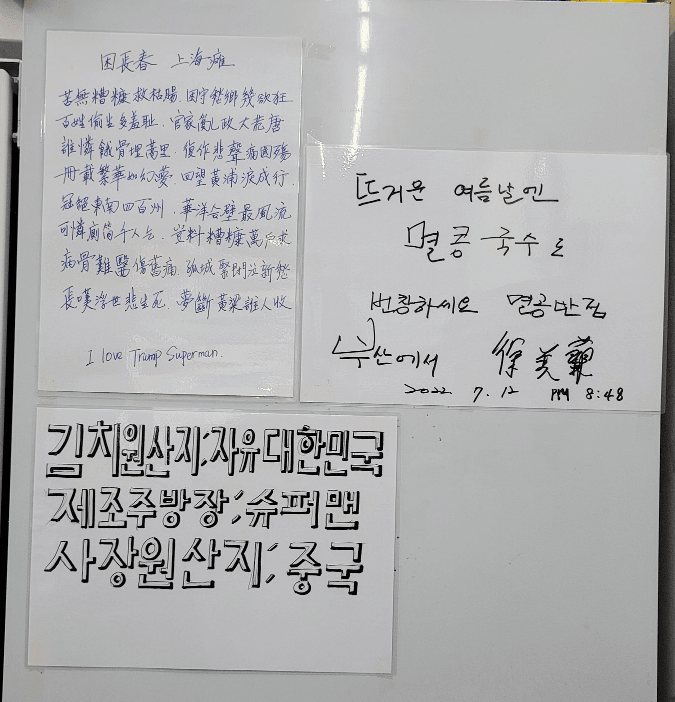 困長春 上海癱
苦無糟糠救枯腸．困守愁鄉幾欲狂
百姓偷生多羞耻．官家亂政大荒唐
誰憐餓骨埋蒿里．偽作悲聲病國殤
冊載繁華如幻夢．回望黃浦淚成行．
冠絕東南四百洲．華洋合壁最風流
可憐廁筒千人乞．豈料糟糠萬戶求
病骨難醫傷舊痛．孤城緊閉泣新愁
長嘆浮世悲生死．夢斷黃梁誰人收
I love Trump Superman.
뜨거운 여름날엔
멸콩 국수로
번창하세요 멸공반점
부산에서 徐美蘭
2022. 7. 12 PM 8:48
김치원산지;자유대한민국
제조주방장;슈퍼맨
사장원산지;중국